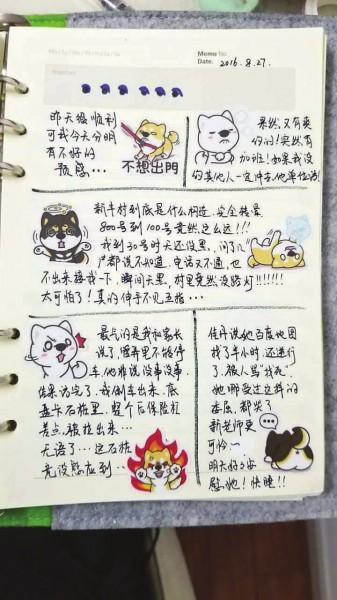 Memo No.
Date. 2016.8.27.
昨天很顺利
可我今天分明
有不好的
预感…
不想出門
果然，又有爽
约的！突然有
加班！如果我没
约其他人一定冲去他单位骂！
新丰村到底是什么构造，完全转晕
800号到100号竟然这么远！！！
我到30号时天还没黑，问了几
户都说不知道，电话又不通，也
不出来接我一下，瞬间天黑，村里竟然没路灯!!!!!!
太可怕了！真的伸手不见五指…
最气的是我和家长
说了，哪里不能停
车，他非说没事没事
结果访完了，我倒车出来，底
盘卡石桩里，整个后保险杠
差点被拉出来…
无语了…这石桩
竟没感应到…
佳丹说她百度地图
找了半小时，还迷行
了，被人骂"找死"，
她哪受过这样的
委屈，都哭了
新老师更
可怜…
明天好好安
慰她！快睡！！